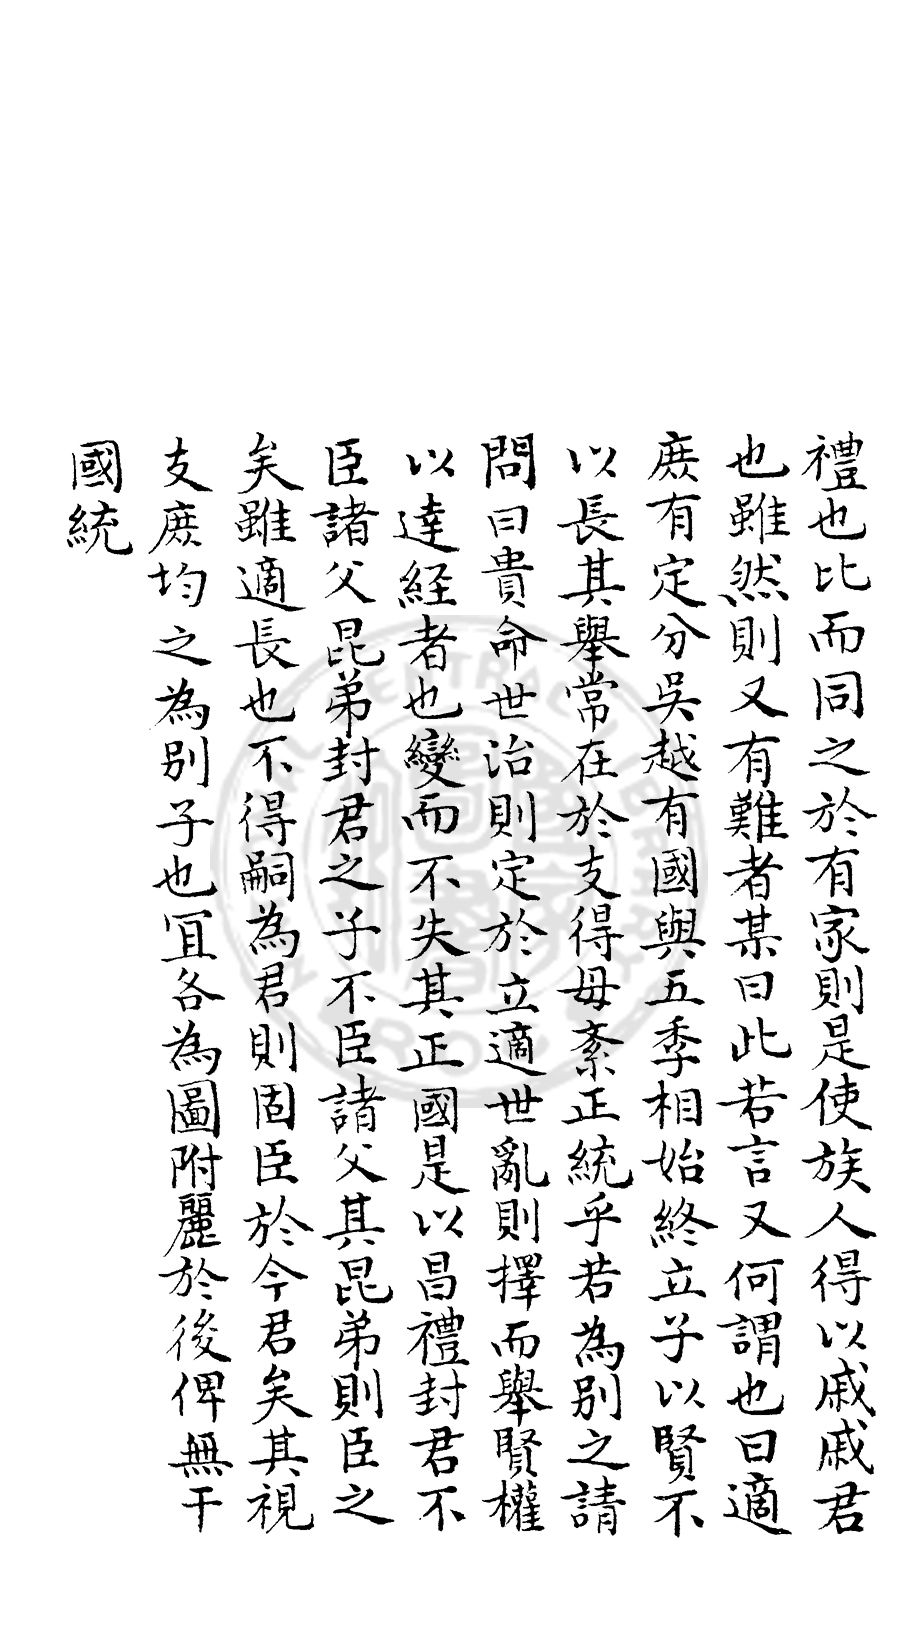 禮也比而同之於有家則是使族人得以戚戚君
也雖然則又有難者某曰此若言又何謂也曰適
庶有定分吳越有國與五季相始終立子以賢不
以長其舉常在於支得毋紊正統乎若為別之請
問曰貴命世治則定於立適世亂則擇而舉賢權
以達經者也變而不失其正國是以昌禮封君不
臣諸父昆弟封君之子不臣諸父其昆弟則臣之
矣雖適長也不得嗣為君則固臣於今君矣其視
支庶均之為別子也宜各為圖附麗於後俾無干
國統